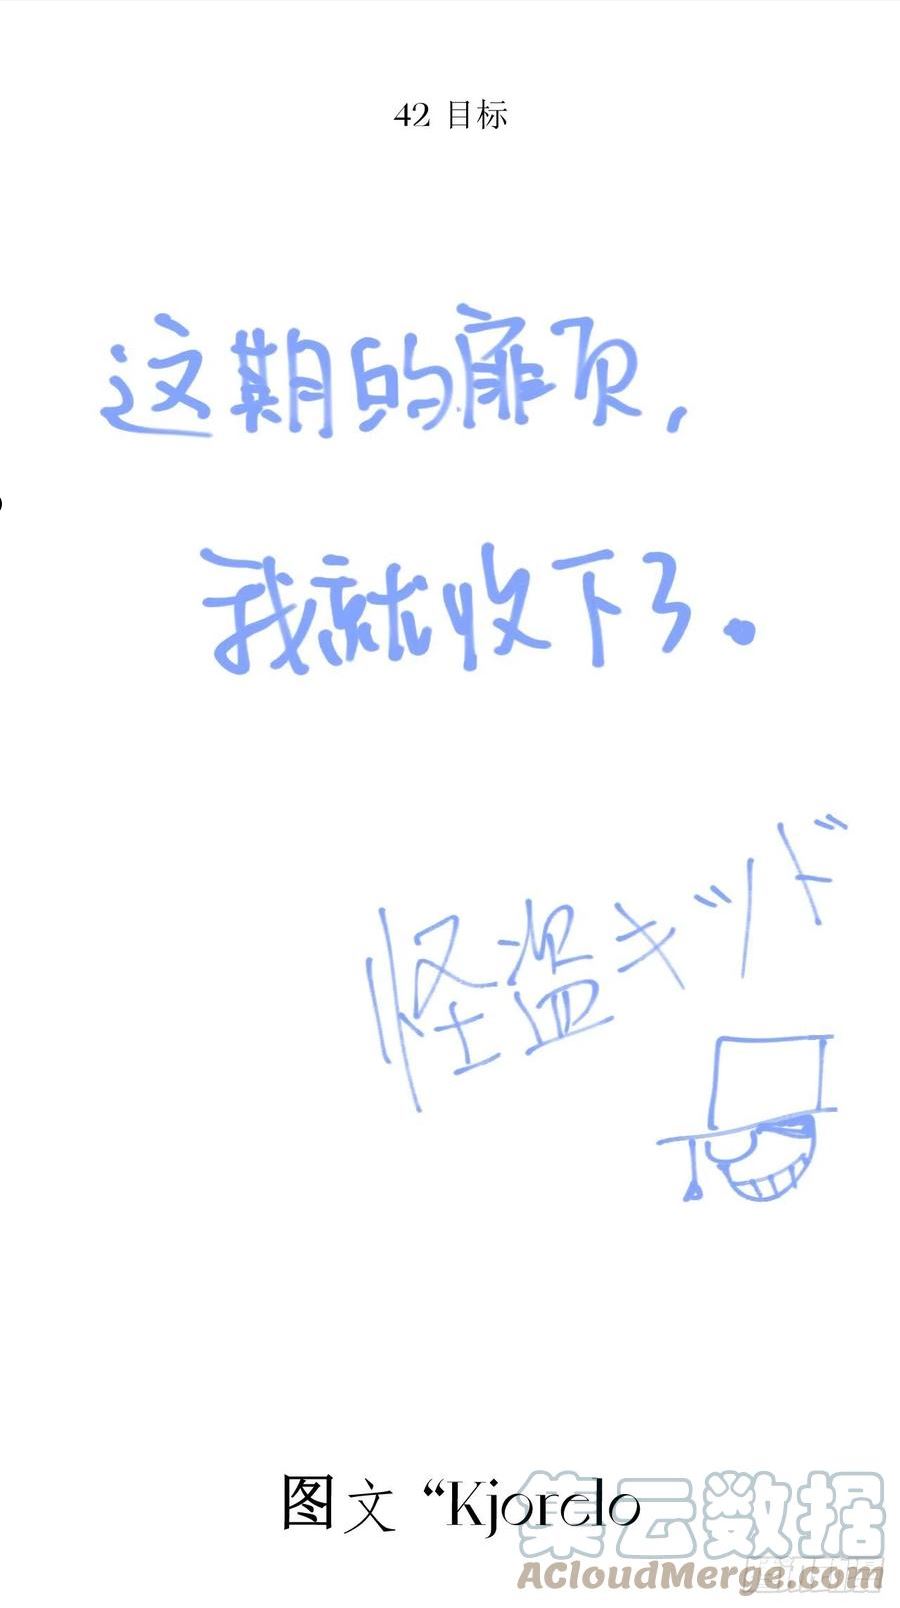 42 目标
这期的扉页，
我就收下了。
怪盗キッド
图文 “Kjorelo
集云数据
ACloudMerge.com